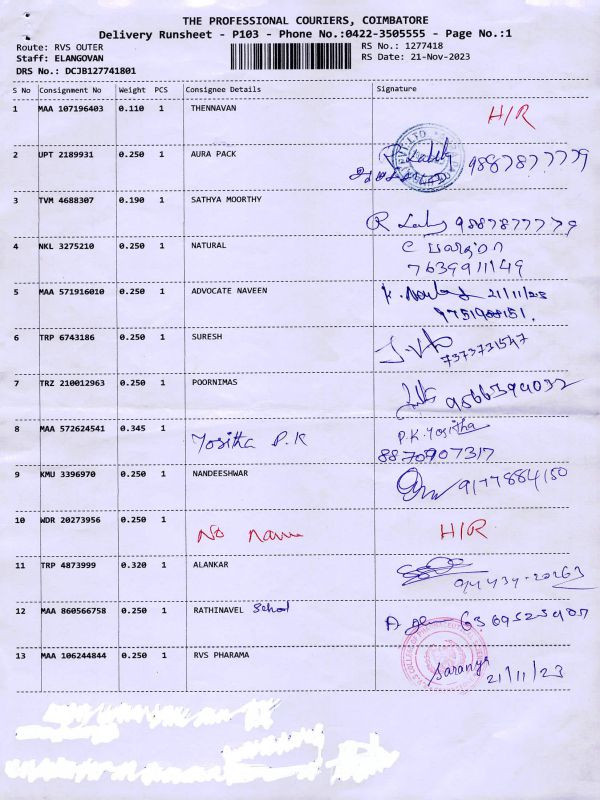 THE PROFESSIONAL COURIERS, COIMBATORE
Delivery Runsheet - P103 - Phone No.:0422-3505555 - Page No.:1
Route: RVS OUTER RS No.: 1277418
Staff: ELANGOVAN RS Date: 21-Nov-2023
DRS No.: DCJB127741801
S No Consignment No Weight PCS Consignee Details Signature
1 MAA 107196403 0.110 1 THENNAVAN H/R
2 UPT 2189931 0.250 1 AURA PACK 9887877779
3 TVM 4688307 0.190 1 SATHYA MOORTHY
R 9887877779
4 NKL 3275210 0.250 1 NATURAL
7639911149
5 MAA 571916010 0.250 1 ADVOCATE NAVEEN 21/11/23
6 TRP 6743186 0.250 1 SURESH
7373731547
7 TRZ 210012963 0.250 1 POORNIMAS 9566394032
8 MAA 572624541 0.345 1 Yositha P.K P.K.Yositha
8870907317
9 KMU 3396970 0.250 1 NANDEESHWAR 9177884150
10 WDR 20273956 0.250 1 No Name H/R
11 TRP 4873999 0.320 1 ALANKAR
12 MAA 860566758 0.250 1 RATHINAVEL School
13 MAA 106244844 0.250 1 RVS PHARAMA
Saranya 21/11/23